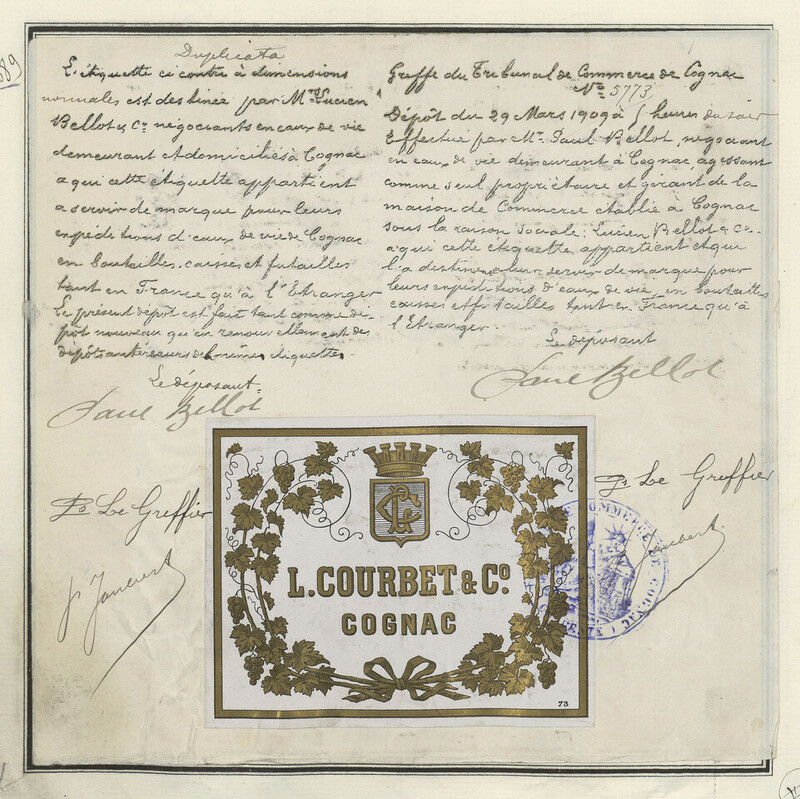 Duplicata
L'étiquette ci contre à dimensions
normales est destinée par Mrs Lucien
Bellot & Cie négociants en eaux de vie
demeurant et domiciliés à Cognac
a qui cette étiquette appartient
a servir de marque pour leurs
expéditions d'eaux de vie de Cognac
en bouteilles, caisses et futailles
tant en France qu'à l'Etranger
Le présent dépôt est fait tant comme dé-
pôt nouveau qu'en renouvellement des
dépôts antérieurs de mêmes étiquettes.
Le déposant
Paul Bellot
Greffe du Tribunal de Commerce de Cognac
No 5773
Dépôt du 29 Mars 1909 à 5 heures du soir
Effectué par Mr. Paul Bellot, négociant
en eaux de vie demeurant à Cognac, agissant
comme seul propriétaire et gérant de la
maison de Commerce établie à Cognac
sous la raison sociale: Lucien Bellot & Cie
a qui cette étiquette appartient et qui
l'a destinée a leur servir de marque pour
leurs expéditions d'eaux de vie en bouteilles
caisses et futailles tant en France qu'à
l'Etranger.
Le déposant
Paul Bellot
Le Greffier
Le Greffier
L. COURBET & Co
COGNAC
73
COMMERCE DE COGNAC